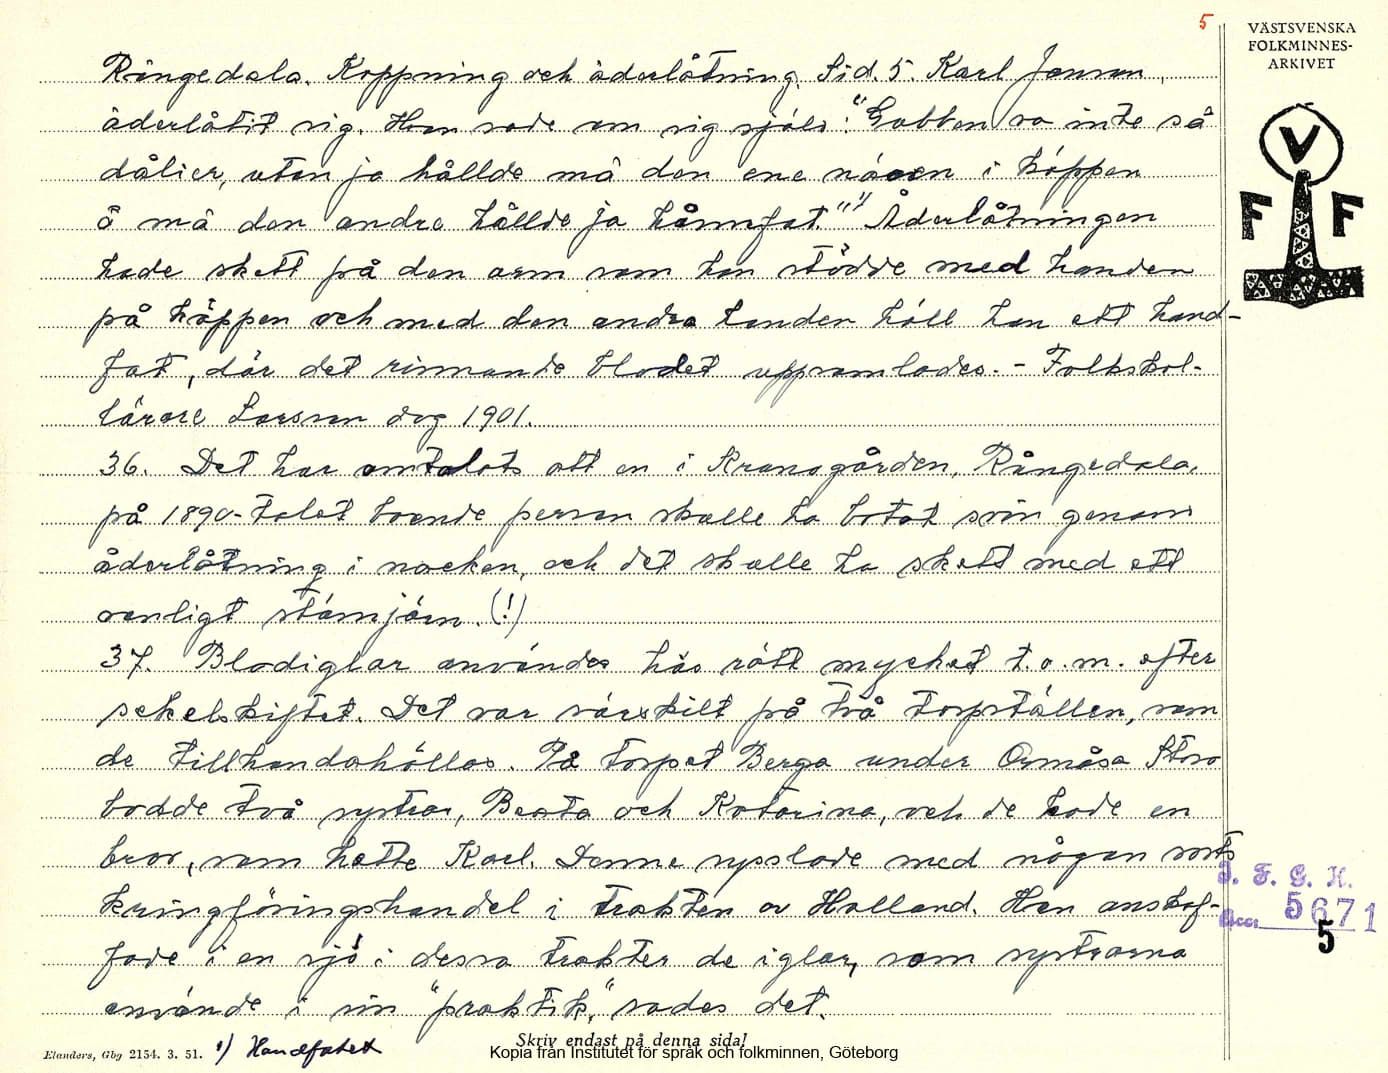 5
VÄSTSVENSKA
FOLKMINNES-
ARKIVET
V
F F
Rångedala. Koppning och åderlåtning. Sid. 5. Karl Jonson,
åderlåtit sig. Han sade om sig själv: "Gubben va inte så
dålier, utan ja hållde mä den ene näven i käppen
å mä den andre hållde ja hännfat."1) Åderlåtningen
hade skett på den arm som han stödde med handen
på käppen och med den andra handen höll han ett hand-
fat, där det rinnande blodet uppsamlades. - Folkskol-
lärare Larsson dog 1901.
36. Det har omtalats att en i Kransgården, Rångedala,
på 1890-talet boende person skulle ha botat svin genom
åderlåtning i nacken, och det skulle ha skett med ett
vanligt stämjärn. (!)
37. Blodiglar användes här rätt mycket t.o.m. efter
sekelskiftet. Det var särskilt på två torpställen, som
de tillhandahöllos. På torpet Berga under Ormåsa Stora
bodde två systrar, Beata och Katarina, och de hade en
bror, som hette Karl. Denne sysslade med någon sorts
kringföringshandel i trakten av Halland. Han anskaf-
fade i en sjö i dessa trakter de iglar, som systrarna
använde i sin "praktik", sades det.
I. F. G. H.
Acc. 5671
5
Skriv endast på denna sida!
Elanders, Gbg 2154. 3. 51.
1) Handfatet
Kopia från Institutet för språk och folkminnen, Göteborg